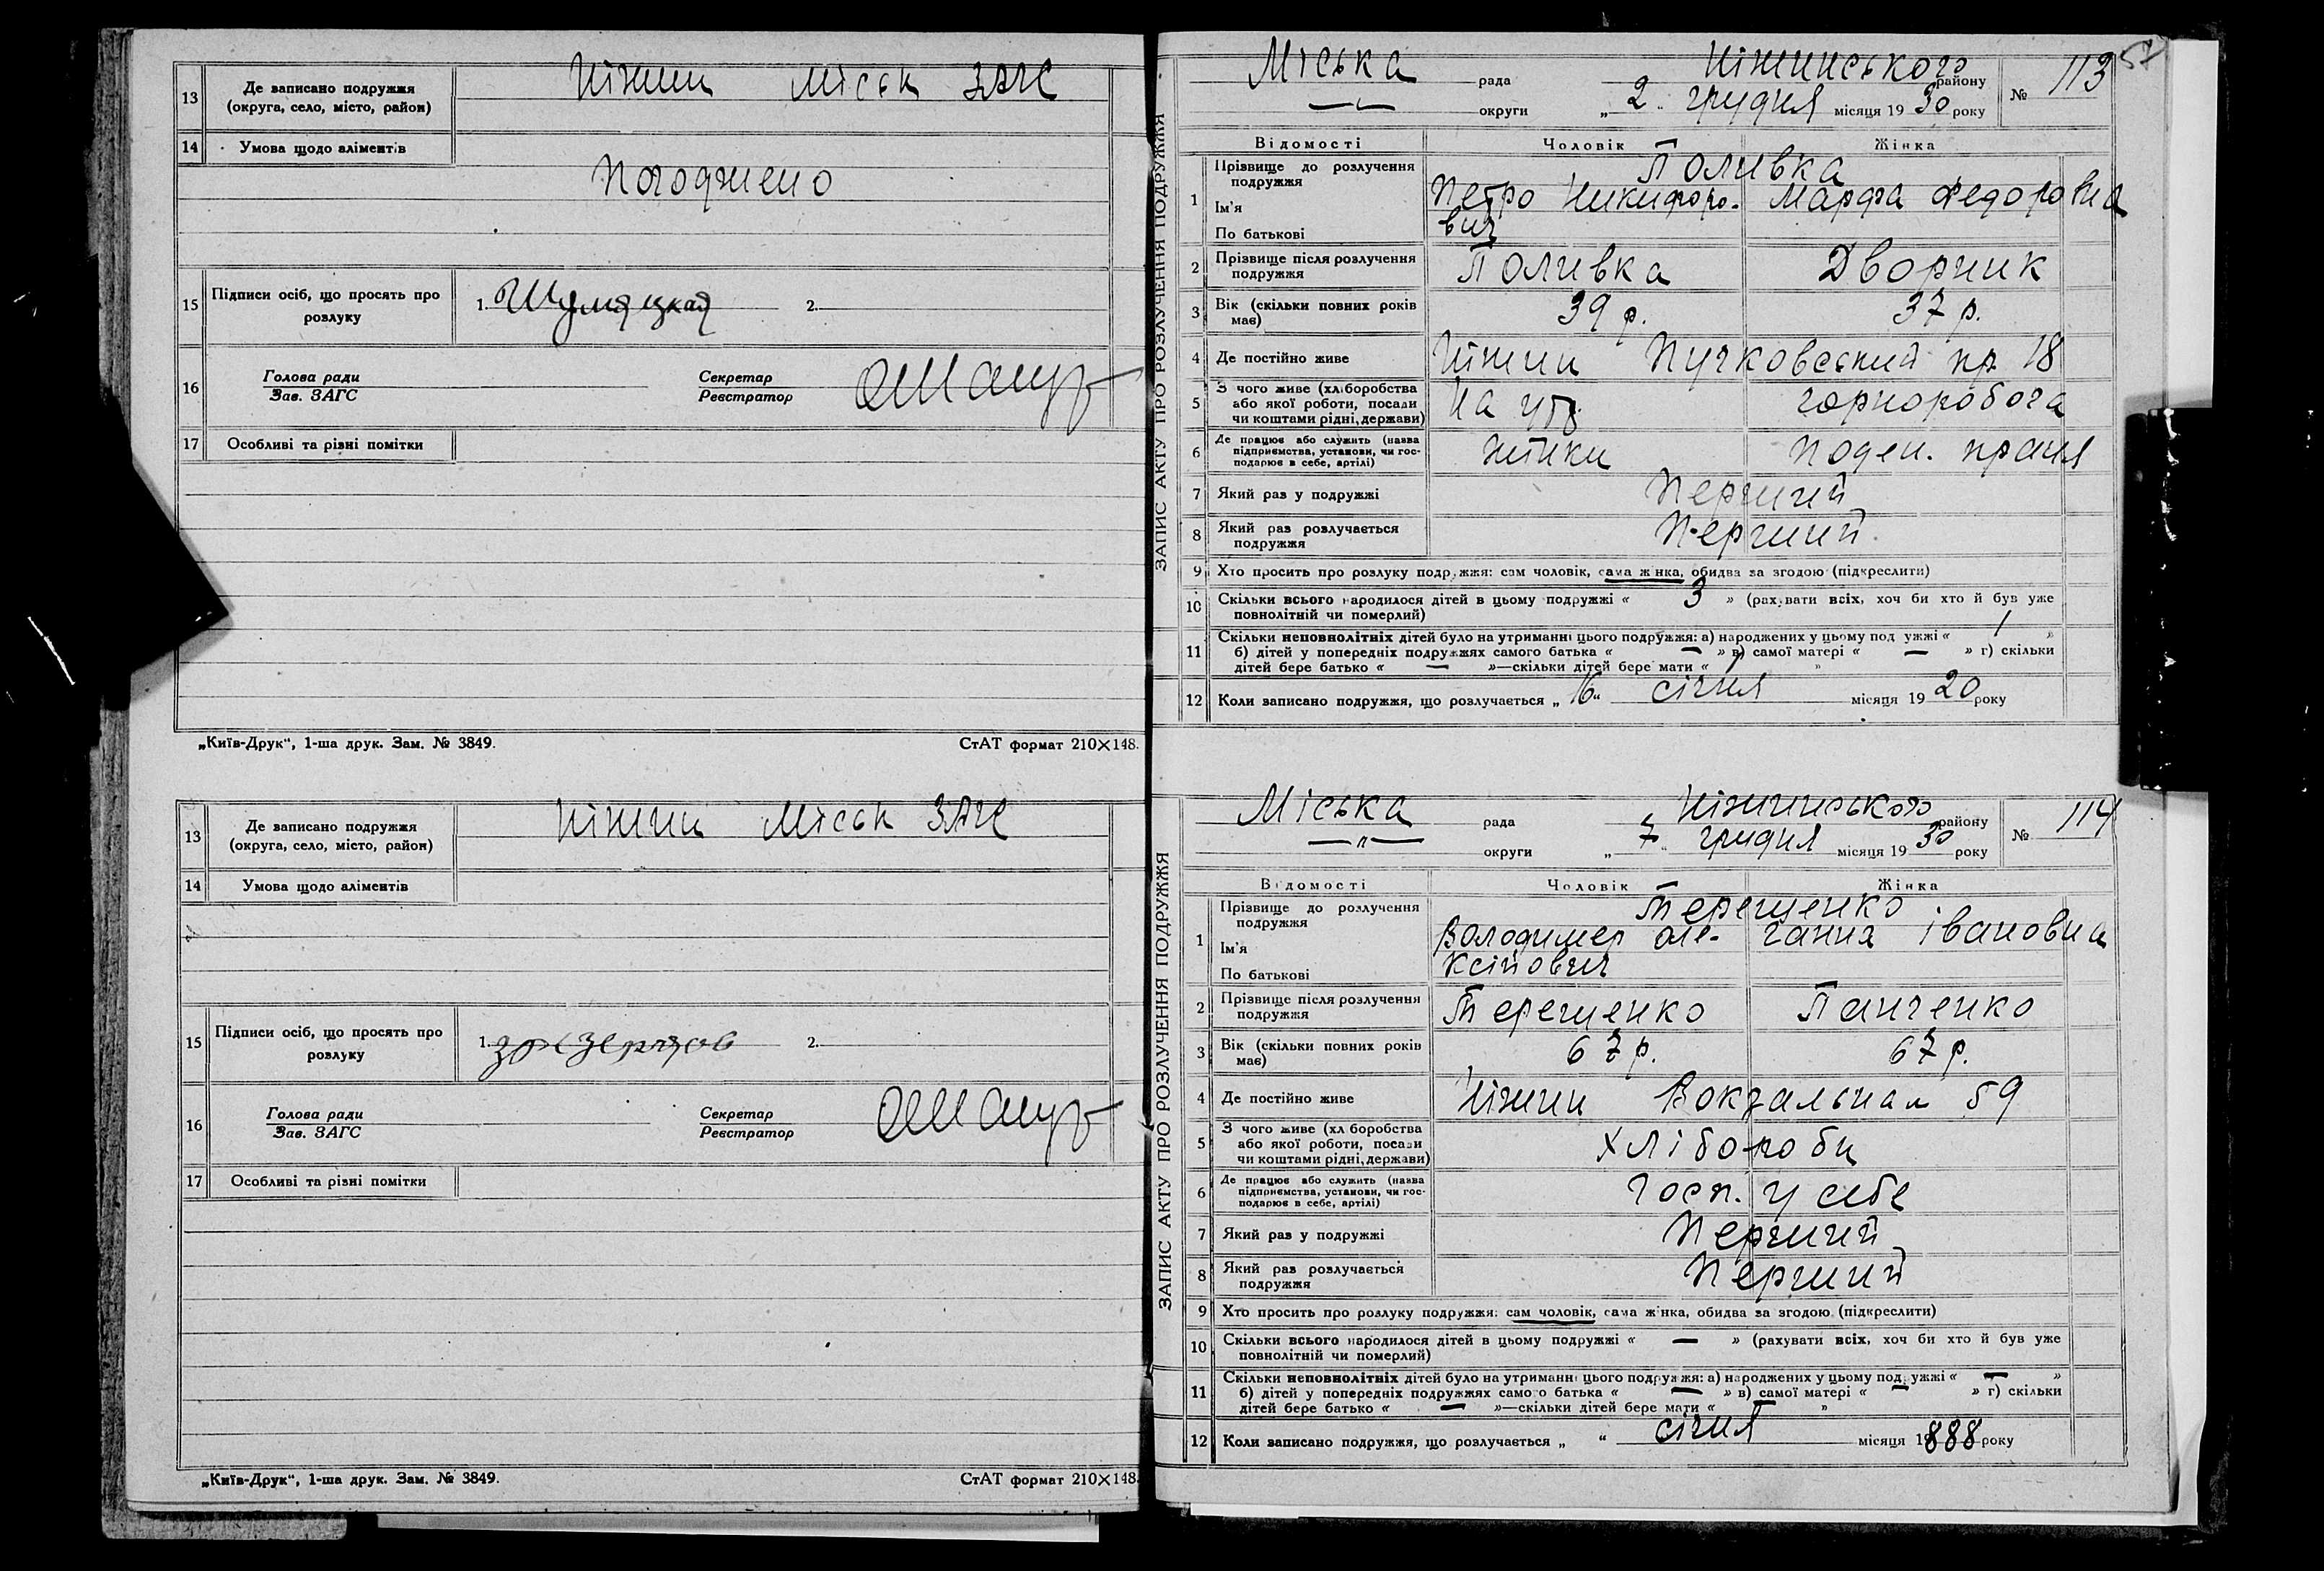 13 Де записано подружжя (округа, село, місто, район) Ніжин міськ ЗАГС
14 Умова щодо аліментів
Погоджено
15 Підписи осіб, що просять про розлуку 1. 2.
16 Голова ради Зав. ЗАГС Секретар Реєстратор
17 Особливі та різні помітки
„Київ-Друк“, 1-ша друк. Зам. № 3849. СтАТ формат 210×148.
13 Де записано подружжя (округа, село, місто, район) Ніжин Міськ ЗАГС
14 Умова щодо аліментів
15 Підписи осіб, що просять про розлуку 1. 2.
16 Голова ради Зав. ЗАГС Секретар Реєстратор
17 Особливі та різні помітки
„Київ-Друк“, 1-ша друк. Зам. № 3849. СтАТ формат 210×148.
57
ЗАПИС АКТУ ПРО РОЗЛУЧЕННЯ ПОДРУЖЖЯ
Міська рада Ніжинського району № 113
—„— округи „2“ грудня місяця 1930 року
Відомості Чоловік Жінка
1 Прізвище до розлучення подружжя Поливка
Ім'я Петро Никифоро- Марфа Федоровна
По батькові вич
2 Прізвище після розлучення подружжя Поливка Дворник
3 Вік (скільки повних років має) 39 р. 37 р.
4 Де постійно живе Ніжин Пучковский пр. 18
5 З чого живе (хліборобства або якої роботи, посади чи коштами рідні, держави) На ут. чорноробоча
6 Де працює або служить (назва підприємства, установи, чи господарює в себе, артілі) жінки поден. праця
7 Який раз у подружжі Перший
8 Який раз розлучається подружжя Перший
9 Хто просить про розлуку подружжя: сам чоловік, сама жінка, обидва за згодою (підкреслити)
10 Скільки всього народилося дітей в цьому подружжі « 3 » (рахувати всіх, хоч би хто й був уже
повнолітній чи померлий)
11 Скільки неповнолітніх дітей було на утриманні цього подружжя: а) народжених у цьому подружжі « 1 »
б) дітей у попередніх подружжях самого батька « — » в) самої матері « — » г) скільки
дітей бере батько « — »—скільки дітей бере мати « 1 »
12 Коли записано подружжя, що розлучається „16“ січня місяця 1920 року
ЗАПИС АКТУ ПРО РОЗЛУЧЕННЯ ПОДРУЖЖЯ
Міська рада Ніжинського району № 114
—„— округи „7“ грудня місяця 1930 року
Відомості Чоловік Жінка
1 Прізвище до розлучення подружжя Терещенко
Ім'я Володимер Оле- Ганна Івановна
По батькові ксійович
2 Прізвище після розлучення подружжя Терещенко Панченко
3 Вік (скільки повних років має) 67 р. 67 р.
4 Де постійно живе Ніжин Вокзальная 59
5 З чого живе (хліборобства або якої роботи, посади чи коштами рідні, держави) Хлібороби
6 Де працює або служить (назва підприємства, установи, чи господарює в себе, артілі) Госп. у себе
7 Який раз у подружжі Перший
8 Який раз розлучається подружжя Перший
9 Хто просить про розлуку подружжя: сам чоловік, сама жінка, обидва за згодою (підкреслити)
10 Скільки всього народилося дітей в цьому подружжі « — » (рахувати всіх, хоч би хто й був уже
повнолітній чи померлий)
11 Скільки неповнолітніх дітей було на утриманні цього подружжя: а) народжених у цьому подружжі « — »
б) дітей у попередніх подружжях самого батька « — » в) самої матері « — » г) скільки
дітей бере батько « — »—скільки дітей бере мати « — »
12 Коли записано подружжя, що розлучається „ “ січня місяця 1888 року